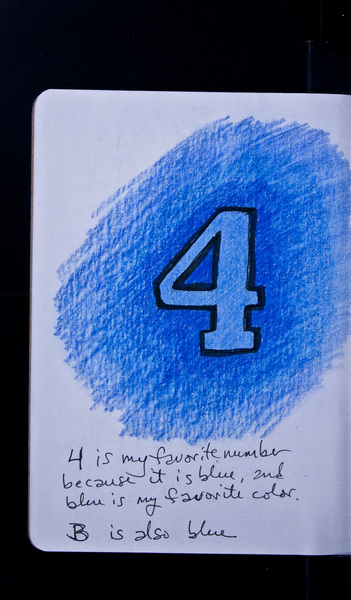 4
4 is my favorite number
because it is blue, and
blue is my favorite color.
B is also blue